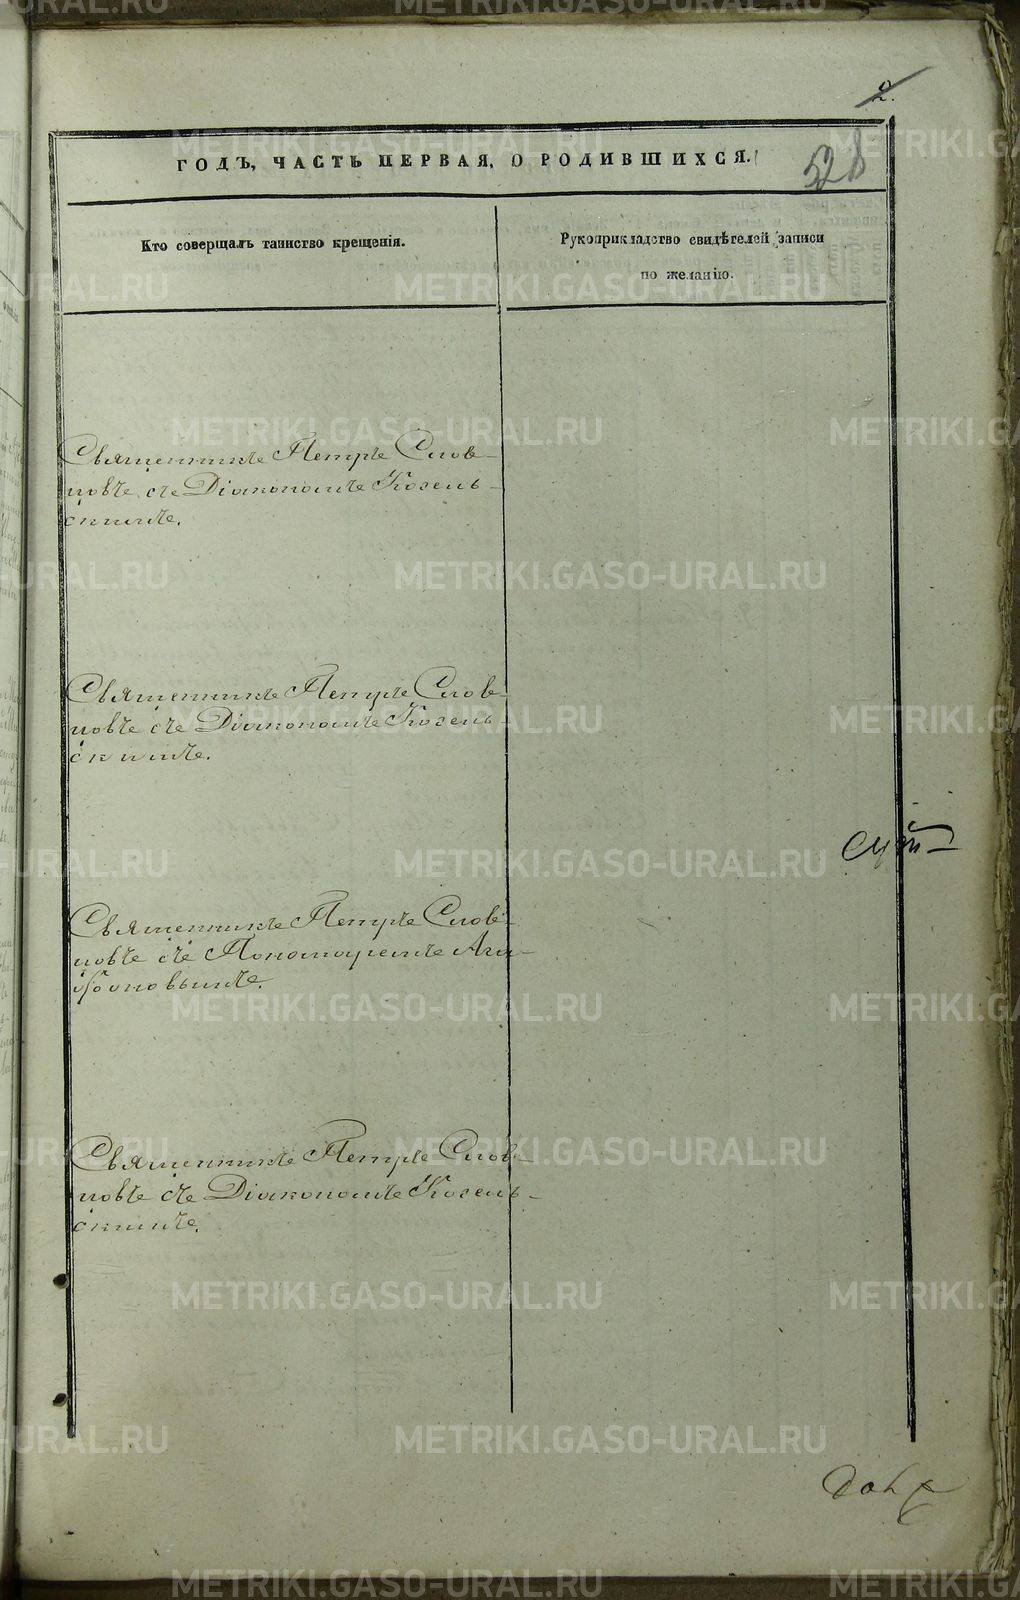 2.
ГОДЪ, ЧАСТЬ ПЕРВАЯ, О РОДИВШИХСЯ.
528
Кто совершалъ таинство крещенія.
Рукоприкладство свидѣтелей записи
по желанію.
Священникъ Петръ Слов-
цовъ съ Діакономъ Козель-
скимъ.
Священникъ Петръ Слов-
цовъ съ Діакономъ Козель-
скимъ.
Священникъ Петръ Слов-
цовъ съ Пономаремъ Ага-
фоновымъ.
Священникъ Петръ Слов-
цовъ съ Діакономъ Козель-
скимъ.
METRIKI.GASO-URAL.RU